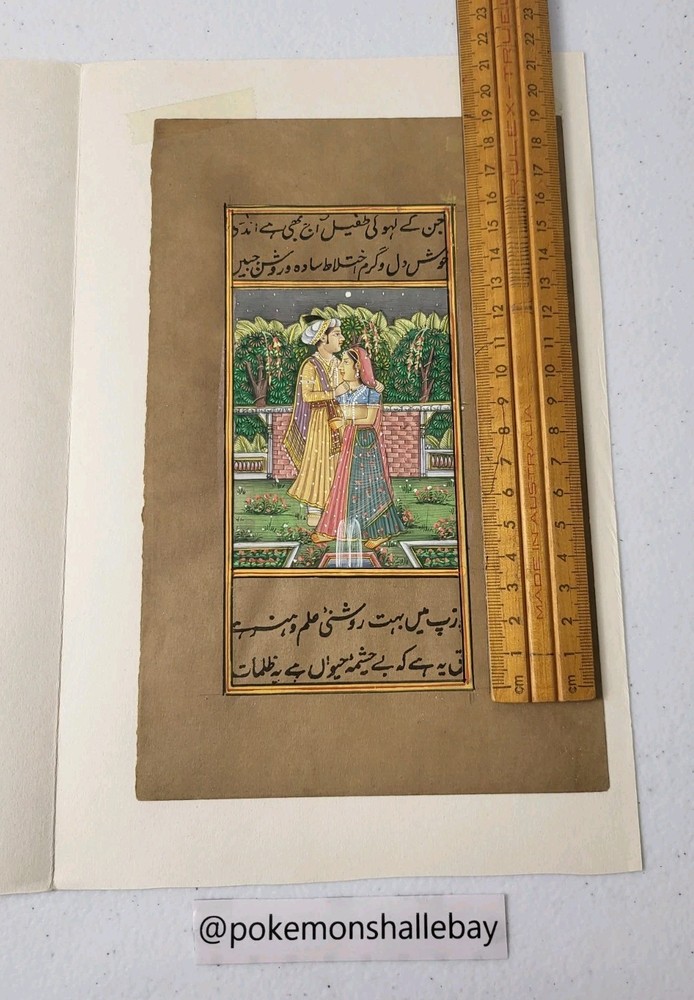 جن کے لہو کی طفیل آج بھی ہے
خوش دل و گرم اختلاط سادہ و روشن جبیں
میں بہت روشنئ علم و ہنر ہے
یہ ہے کہ بے چشمۂ حیواں ہے یہ ظلمات
23 22 21 20 19 18 17 16 15 14 13 12 11 10 9 8 7 6 5 4 3 2 1 cm
RULEX-TRUE
MADE IN AUSTRALIA
23 22 21 20 19 18 17 16 15 14 13 12 11 10 9 8 7 6 5 4 3 2 1 cm
@pokemonshallebay